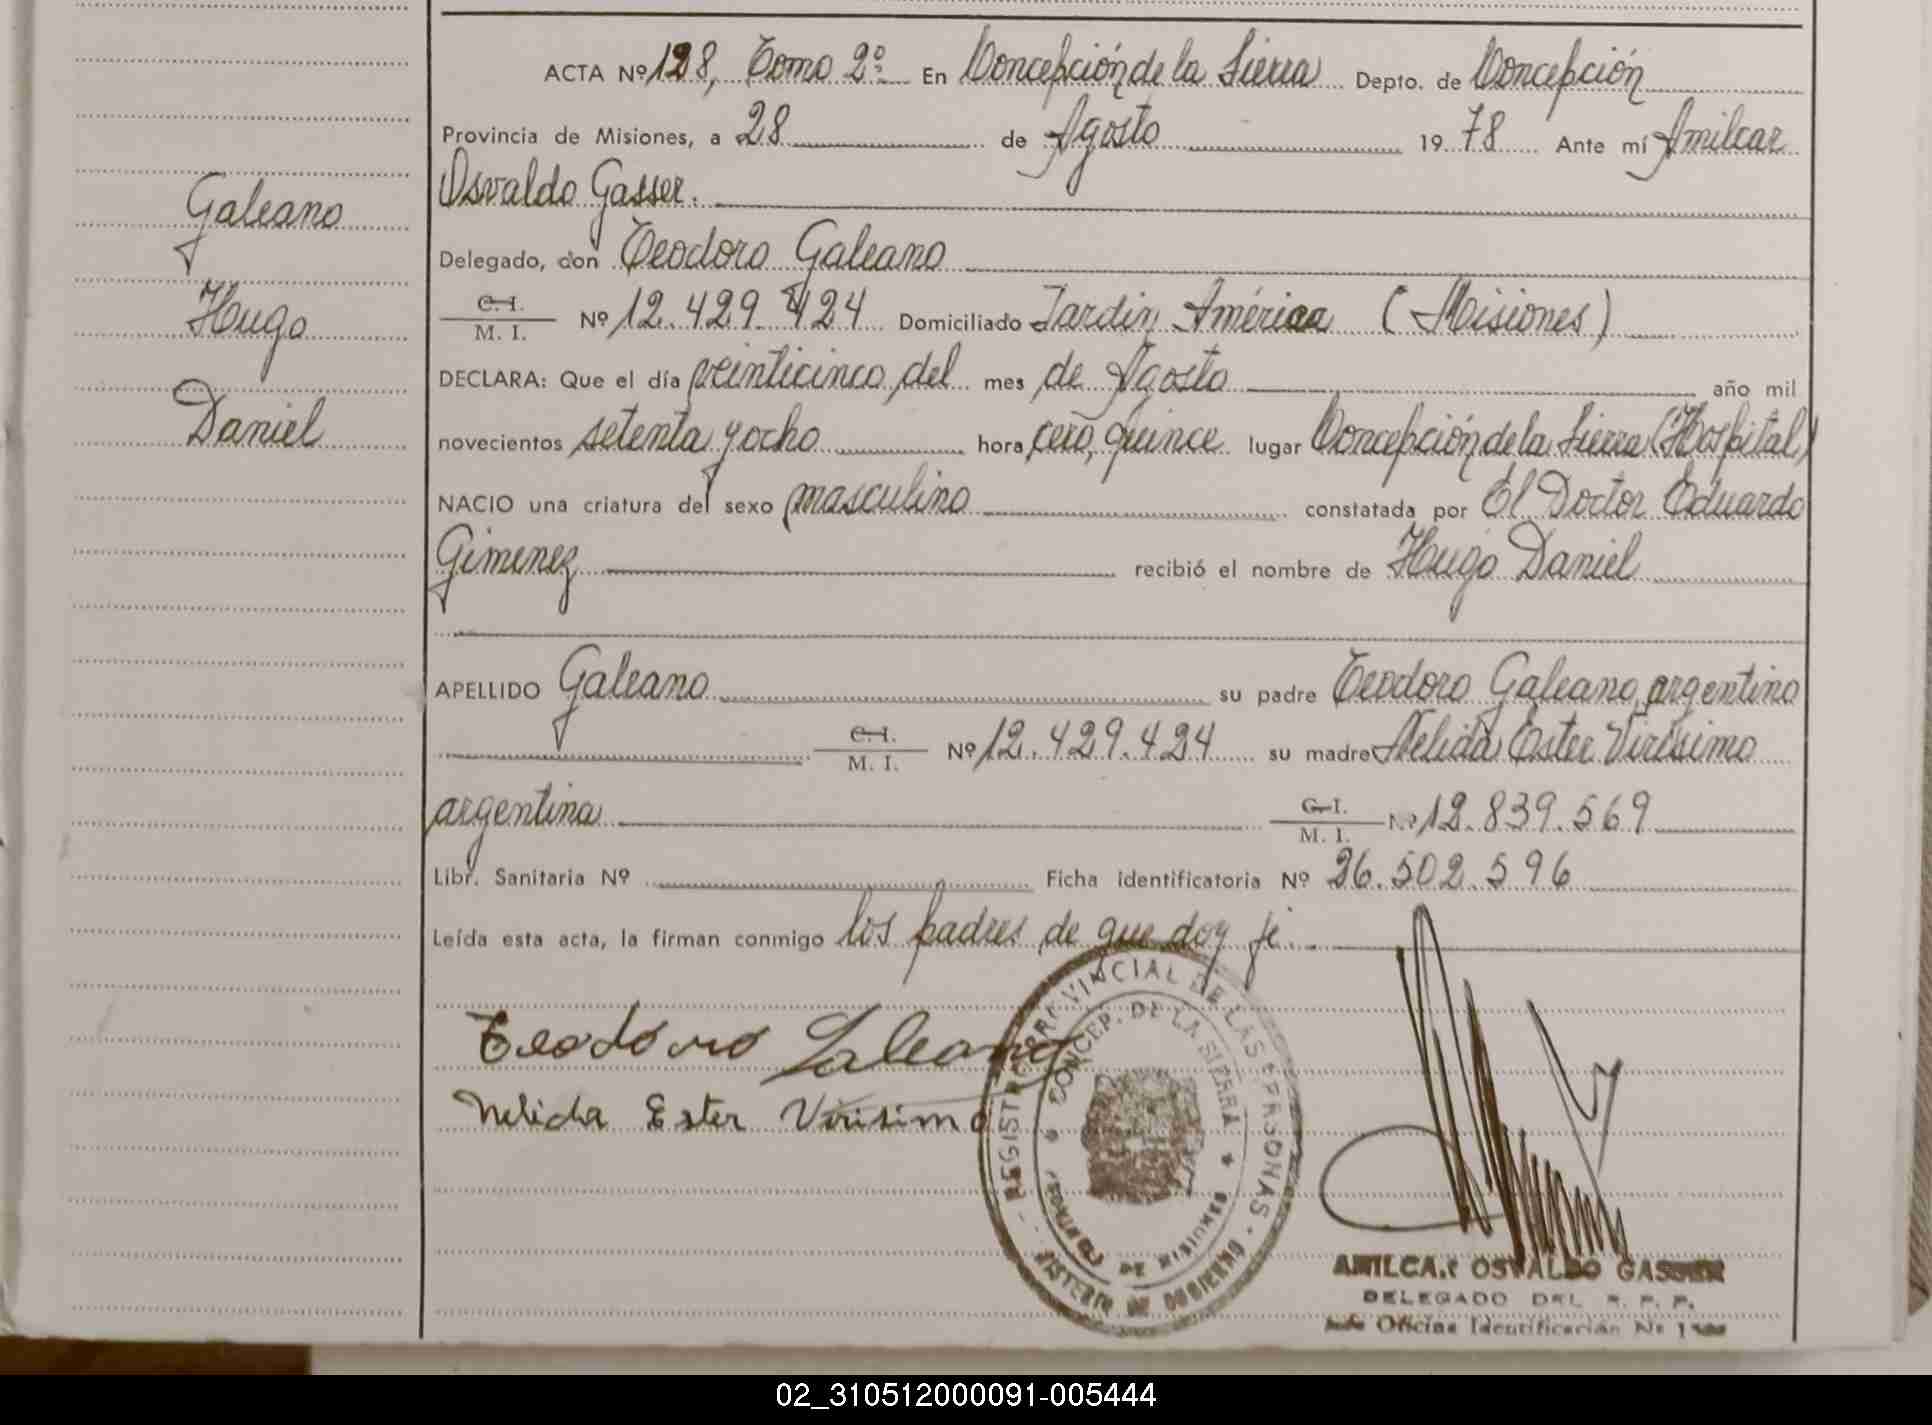 ACTA Nº 128, Tomo 2º En Concepción de la Sierra Depto. de Concepción
Provincia de Misiones, a 28 de Agosto 1978 Ante mí Amilcar
Osvaldo Gasser.
Galeano
Delegado, don Teodoro Galeano
C. I.
M. I. Nº 12.429.424 Domiciliado Jardin América (Misiones)
Hugo
DECLARA: Que el día veinticinco del mes de Agosto año mil
Daniel
novecientos setenta y ocho hora cero, quince lugar Concepción de la Sierra (Hospital)
NACIO una criatura del sexo masculino constatada por El Doctor Eduardo
Gimenez recibió el nombre de Hugo Daniel
APELLIDO Galeano su padre Teodoro Galeano, argentino
C. I.
M. I. Nº 12.429.424 su madre Nelida Ester Virisimo
argentina C. I.
M. I. Nº 12.839.569
Libr. Sanitaria Nº Ficha identificatoria Nº 26.502.596
Leída esta acta, la firman conmigo los padres de que doy fé.
Teodoro Galeano
Nelida Ester Virisimo
REGISTRO PROVINCIAL DE LAS PERSONAS
CONCEP. DE LA SIERRA
DE MISIONES
DE GOBIERNO
AMILCAR OSVALDO GASSER
DELEGADO DEL R. P. P.
Oficina Identificación Nº
02_310512000091-005444